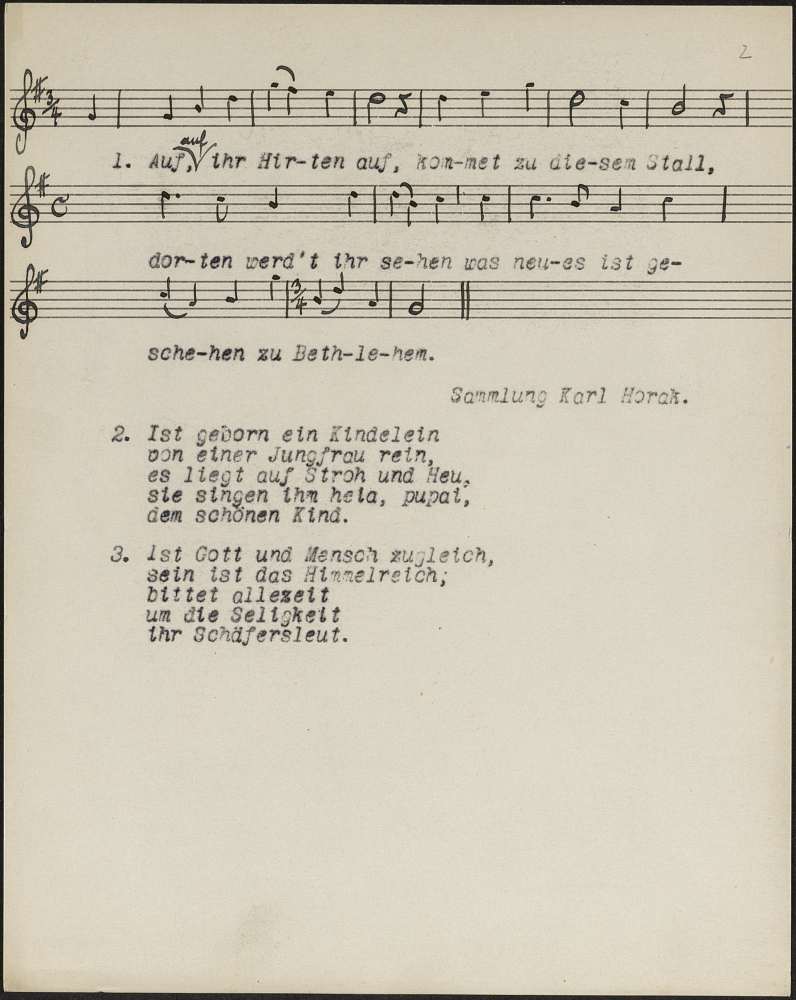 2
1. Auf, auf ihr Hir-ten auf, kom-met zu die-sem Stall,
dor-ten werd't ihr se-hen was neu-es ist ge-
sche-hen zu Beth-le-hem.
Sammlung Karl Horak.
2. Ist geborn ein Kindelein
von einer Jungfrau rein,
es liegt auf Stroh und Heu,
sie singen ihm heia, pupai,
dem schönen Kind.
3. Ist Gott und Mensch zugleich,
sein ist das Himmelreich;
bittet allezeit
um die Seligkeit
ihr Schäfersleut.